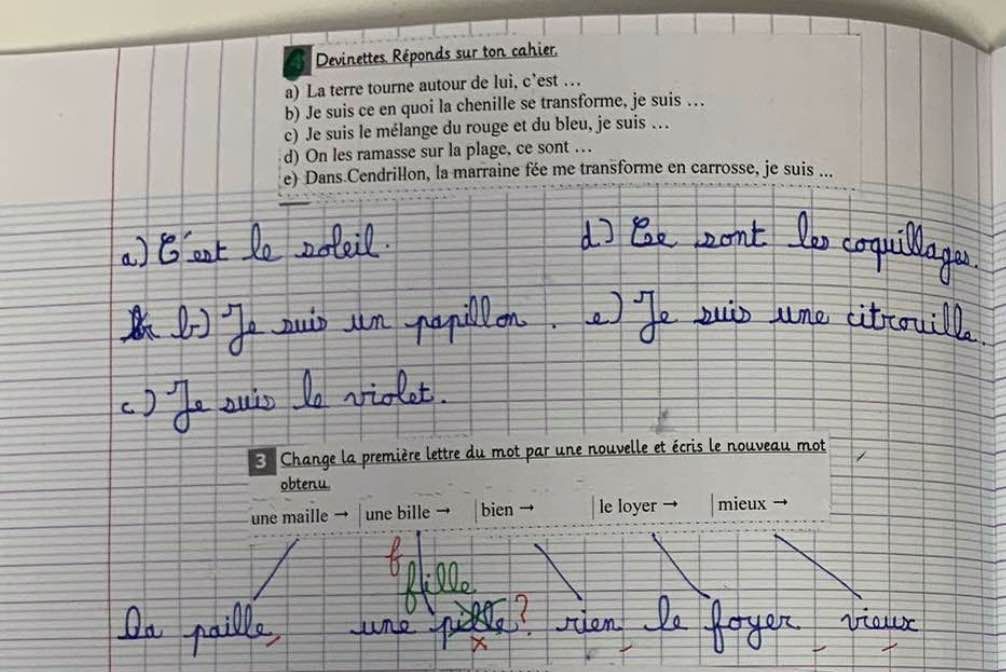 Devinettes. Réponds sur ton cahier.
a) La terre tourne autour de lui, c'est ...
b) Je suis ce en quoi la chenille se transforme, je suis ...
c) Je suis le mélange du rouge et du bleu, je suis ...
d) On les ramasse sur la plage, ce sont ...
e) Dans Cendrillon, la marraine fée me transforme en carrosse, je suis ...
a) C'est le soleil.
d) Ce sont les coquillages.
b) Je suis un papillon.
e) Je suis une citrouille.
c) Je suis le violet.
3 Change la première lettre du mot par une nouvelle et écris le nouveau mot
obtenu.
une maille → | une bille → | bien → | le loyer → | mieux →
f
fille
La paille, une pille ? rien le foyer vieux
x